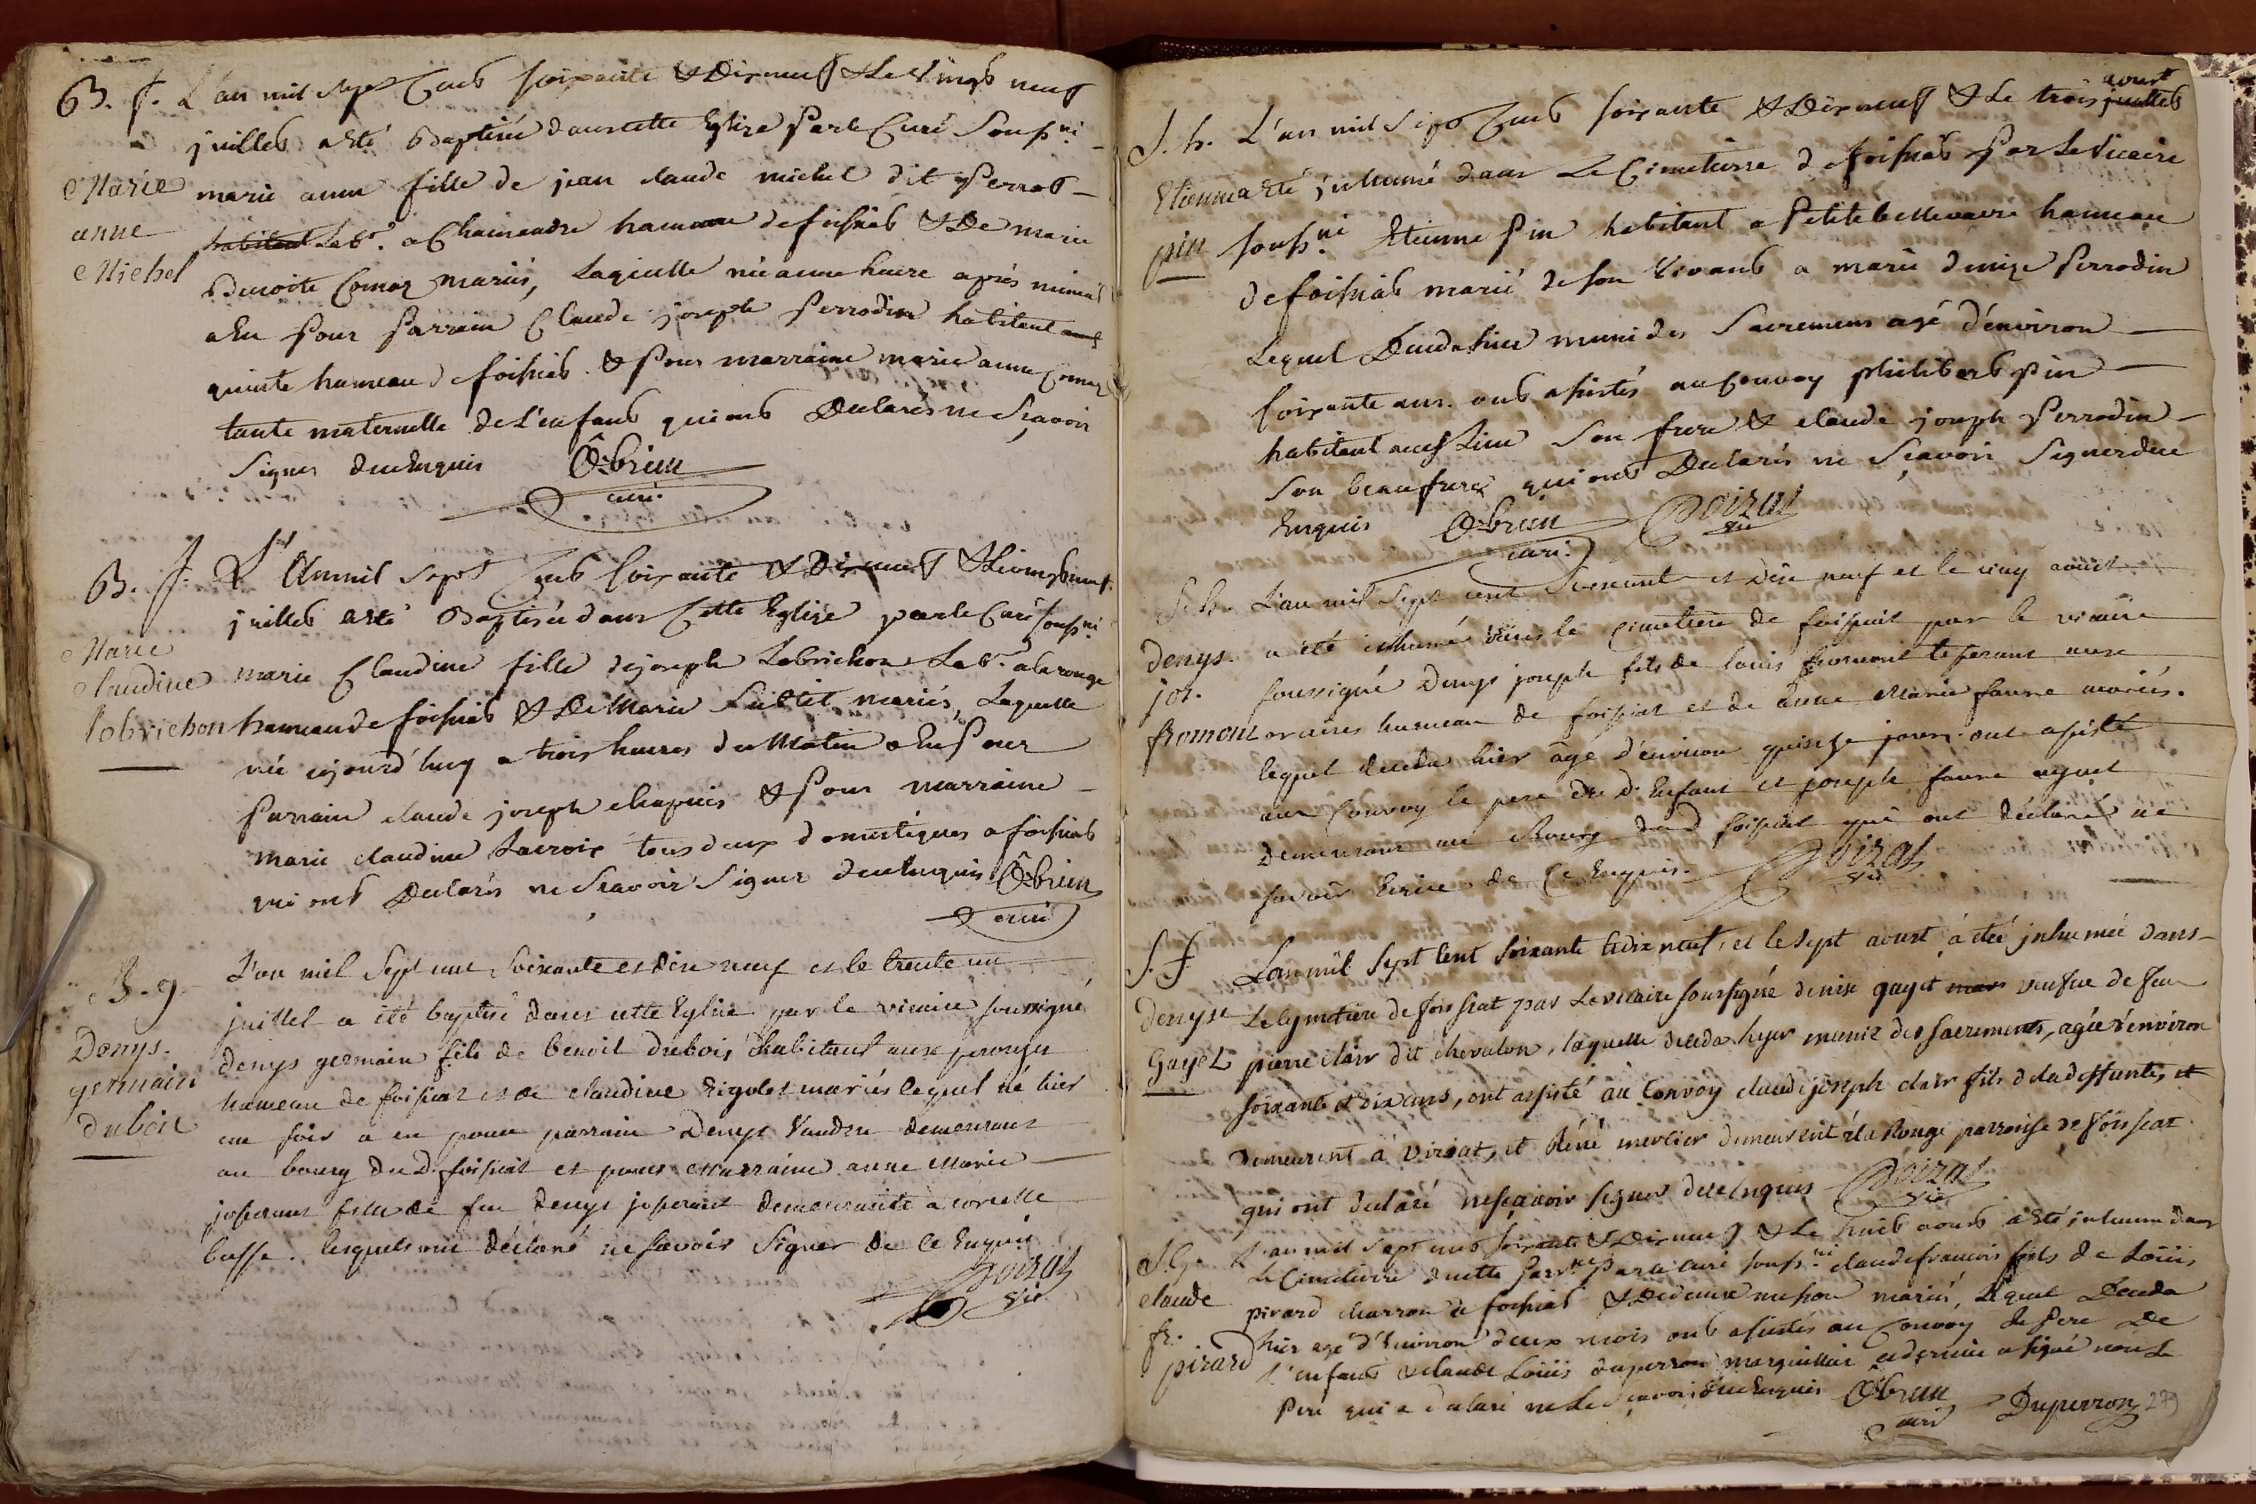 B. f. L'an mil Sept Cent soixante & Dix neuf & Le vingt neuf
juillet a Eté Baptisée dans cette Eglise Par le Curé Souss.né
Marie
anne
Michel
marie anne fille de jean claude michel dit Perrot
habitant Lab.r a Chainandre hameau de foissiat & De marie
Benoite Comaz mariés, Laquelle née a une heure après minuit
a Eu Pour Parrain Claude joseph Perrodin habitant
hameau de foissiat & Pour marraine marie anne Comaz
tante maternelle de L'enfant qui ont Declarés ne Sçavoir
Signer de ce Enquis Ô-brien
curé.
B. f. L'An mil Sept Cent soixante & Dix neuf & Le vingt neuf
juillet a Eté Baptisée dans Cette Eglise par le Curé souss.né
Marie
Claudine
lobrichon
marie Claudine fille de joseph Lobrichon Lab.r a la rouge
hameau de foissiat & De Marie mariés, Laquelle
née aujourd'huy a trois heures du Matin a Eu Pour
Parrain claude joseph chapuis & Pour marraine
marie claudine Lacroix tous deux domestiques a foissiat
qui ont Declarés ne Sçavoir Signer de ce Enquis Ô-brien
curé
B. g.
Denys
germain
dubois
L'an mil Sept cent Soixante et dix neuf et le trente un
juillet a été baptisé dans cette Eglise par le vicaire soussigné
denys germain fils de benoit dubois habitant aux
hameau de foissiat et de claudine Rigolet mariés lequel né hier
au soir a eu pour parrain Denys Vaudru demeurant
au bourg du D. foissiat et pour Marraine anne Marie
josserant fille de feu denys josserant demeurante a corcelle
basse. lesquels ont déclaré ne savoir Signer de ce Enquis
Poizat
vic
S. h. L'an mil Sept Cent soixante & Dix neuf & Le trois juillet
aoust
Etienne
pin
a Eté inhumé dans Le Cimetierre de foissiat Par Le Vicaire
souss.né Etienne Pin habitant a Petite bellevavre hameau
de foissiat marié de son Vivant a marie denize Perrodin
Lequel Deceda hier muni des Sacremens agé d'environ
soixante ans. ont assistés au Convoy philibert pin
habitant aussi Lieu Son frere & claude joseph Perrodin
Son beaufrere qui ont Declarés ne Sçavoir Signer de ce
Enquis Ô-brien Poizat
curé. vic
S. h. L'an mil Sept cent Soixante et dix neuf et le cinq aoust
denys
jos.
fromont
a été inhumé dans le cimetiere de foissiat par le vicaire
soussigné Denys joseph fils de louis fromont tisserant aux
hameau de foissiat et de anne Marie faure mariés.
lequel deceda hier âgé d'environ quinze jours. ont assisté
au Convoy le pere du d. Enfant et joseph faure
demeurant au Bourg dud foissiat qui ont déclaré ne
savoir Ecrire de Ce Enquis. Poizat
vic
S. f. L'an mil Sept cent soixante & dix neuf, et le Sept aoust, a été jnhumée dans
denyse
Gayet
Le cymetiere de foissiat par Le vicaire soussigné denise gayet veufue de feu
pierre clair dit chevalon, laquelle deceda hyer munie des sacrements, agée d'environ
soixante et dix ans, ont assisté au Convoy claude joseph clair fils de la deffunte, et
Demeurent à viriat, et Réné mercier demeurent à la Rouge parroisse de foissiat
qui ont declaré ne sçavoir signer de ce enquis Poizat
vic
S. g. L'an mil Sept cent soixante & Dix neuf & Le huit aoust a Eté inhumé dans
claude
fr.
pirard
Le Cimetierre de cette Parr.sse Par Le curé souss.né claude francois fils de Loüis
pirard charron a foissiat & De denise michon mariés, Lequel Deceda
hier agé d'Environ deux mois ont assistés au Convoy Le Pere De
L'enfant & claude Loüis duperron marguillier ce dernier a signé non Le
Pere qui a declaré ne Le Sçavoir de ce Enquis Ô-brien Duperron 279
curé